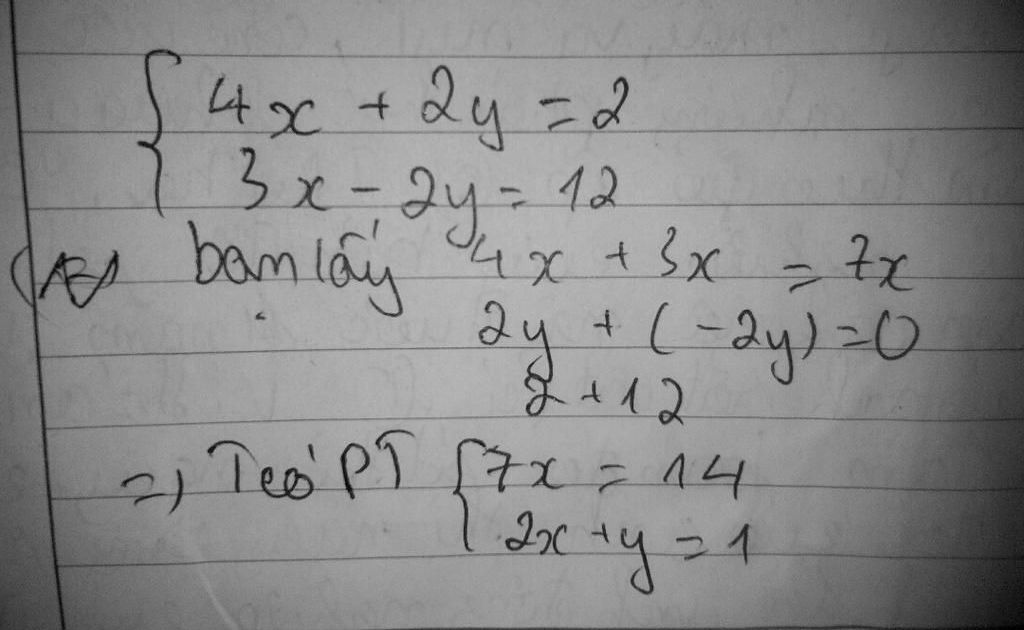 { 4x + 2y = 2
3x - 2y = 12
bạn lấy 4x + 3x = 7x
2y + (-2y) = 0
2 + 12
=) PT { 7x = 14
2x + y = 1